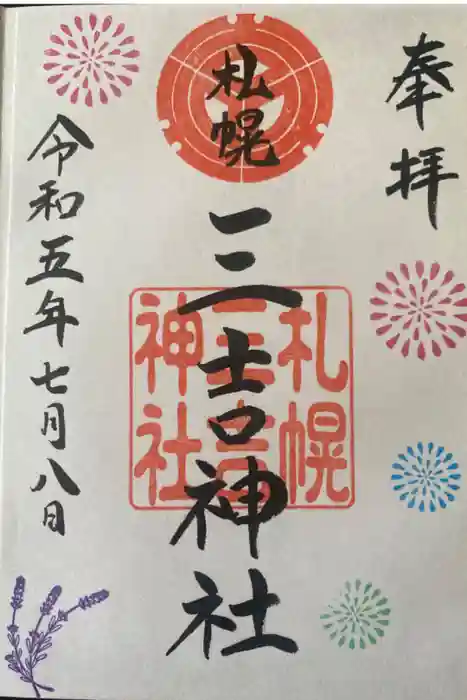 奉拝
札幌
三吉神社
札幌
三吉
神社
令和五年七月八日